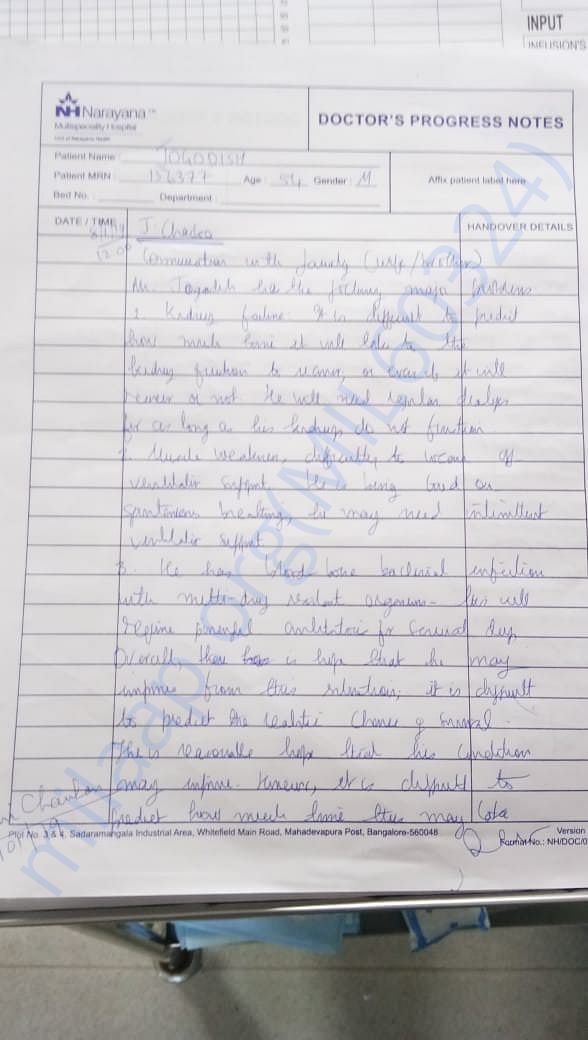 INPUT
INFUSION'S
NH Narayana
Multispecialty Hospital
Unit of Narayana Health
DOCTOR'S PROGRESS NOTES
Patient Name: JOGODISH
Patient MRN: 156377 Age: 54 Gender: M
Affix patient label here
Bed No. Department:
DATE / TIME
HANDOVER DETAILS
12.00
Communication with family (wife/brother)
Mr. Jogadish has the following major problems
1. Kidney failure. It is difficult to predict
how much time it will take to the
kidney function to recover, or even if it will
recover or not. He will need regular dialysis
for as long as his kidneys do not function
2. Muscle weakness, difficulty to come off
ventilator support. He is being tried on
spontaneous breathing, he may need intermittent
ventilator support
3. He has blood borne bacterial infection
with multi-drug resistant organism - this will
require powerful antibiotics for several days
Overall, there is hope that he may
improve from this situation; it is difficult
to predict the realistic chance of survival.
There is reasonable hope that his condition
may improve. However, it is difficult to
predict how much time this may take
Plot No. 3 & 4, Sadaramangala Industrial Area, Whitefield Main Road, Mahadevapura Post, Bangalore-560048
Version
Format No.: NH/DOC/0
milaap.org(MIL60324)